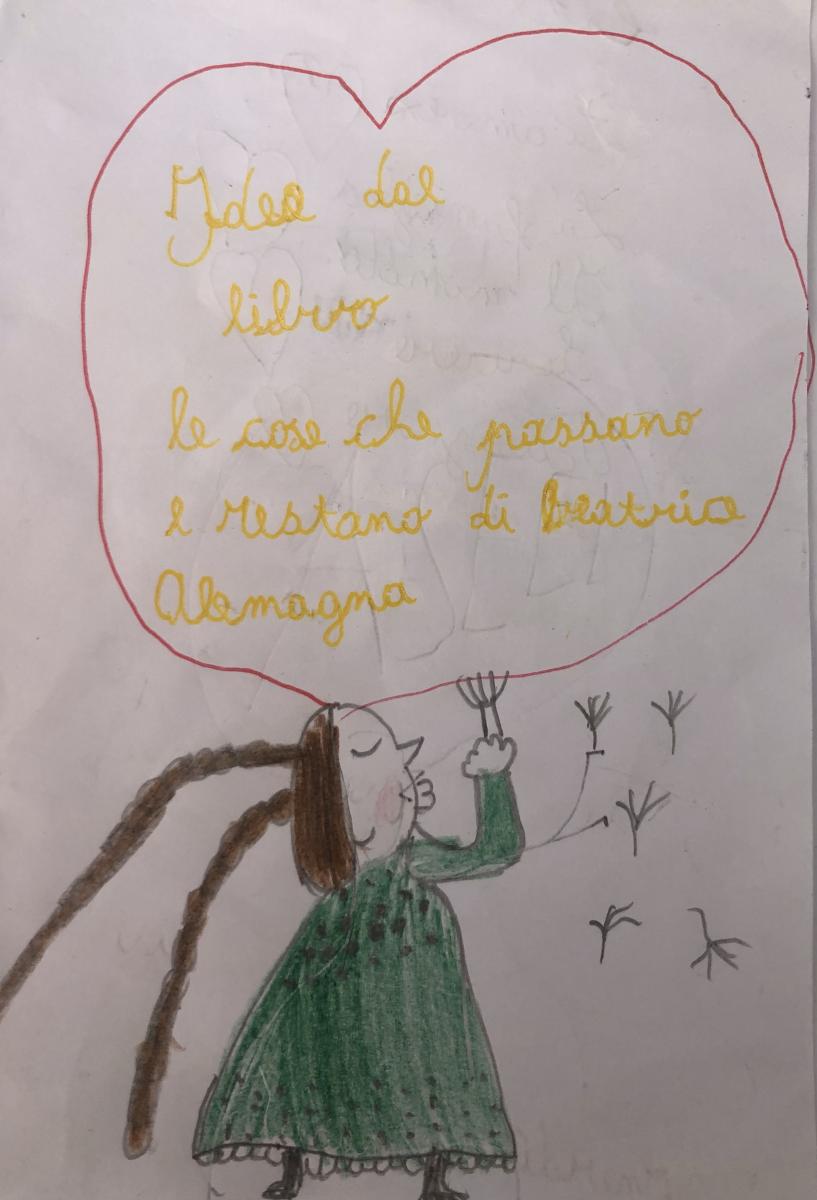 Idea dal
libro
le cose che passano
e restano di Beatrice
Alemagna